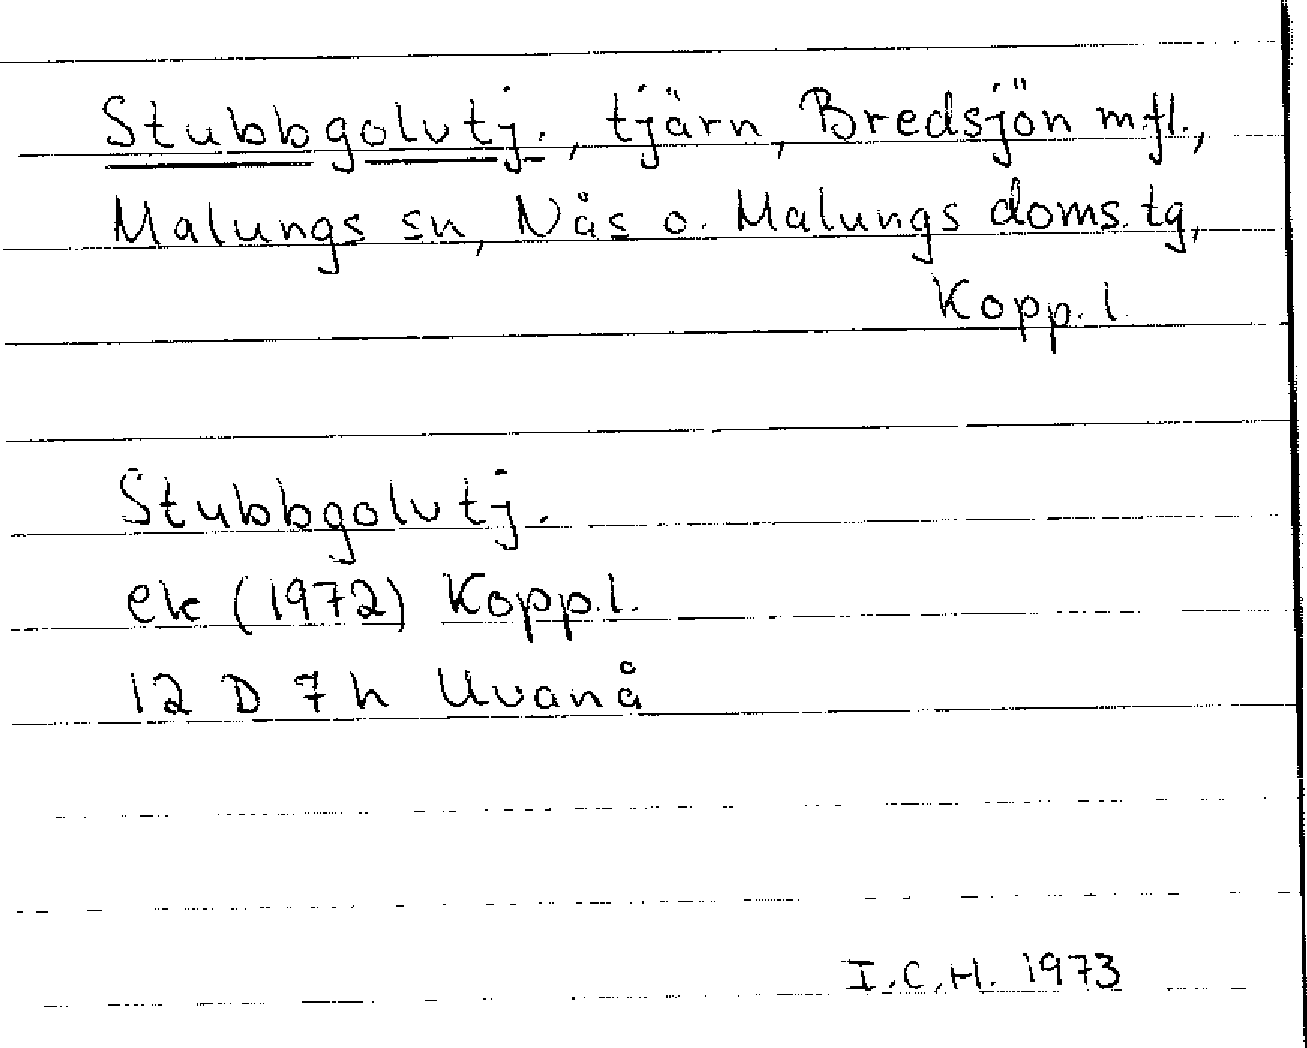 Stubbgolvtj., tjärn, Bredsjön mfl.,
Malungs sn, Nås o. Malungs doms. tg,
Kopp. l.
Stubbgolvtj.
ek (1972) Kopp.l.
12 D 7 h Uvanå
I.C.H. 1973